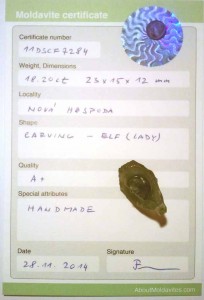 Moldavite certificate
Certificate number
11DSCF7284
Weight, Dimensions
18.20ct 25x15x12 mm
Locality
NOVÁ HOSPODA
Shape
CARVING - ELF (LADY)
Quality
A+
Special attributes
HANDMADE
Date
Signature
28.11.2014
AboutMoldavites.com